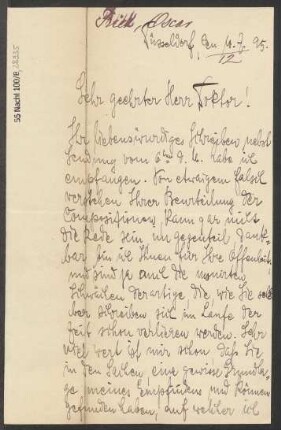 Bick, Oscar
55 Nachl 100/B,
Düsseldorf, den 10.7. 95.
12
Sehr geehrter Herr Doktor!
Ihr liebenswürdiges Schreiben nebst
Sendung vom d. M. habe ich
empfangen. Von etwaigem falsch
verstehen Ihrer Beurteilung der
Compositionen, kann gar nicht
die Rede sein im gegenteil, dank-
bar bin ich Ihnen für Ihre Offenheit,
und sind ja auch die meisten
Schwächen derartige die, wie Sie sel-
ber schreiben sich im Laufe der
Zeit schon verlieren werden. Sehr
viel wert ist mir schon, daß Sie
in den Sachen eine gewisse Grundla-
ge meines Empfindens und Könnens
gefunden haben, auf welcher ich